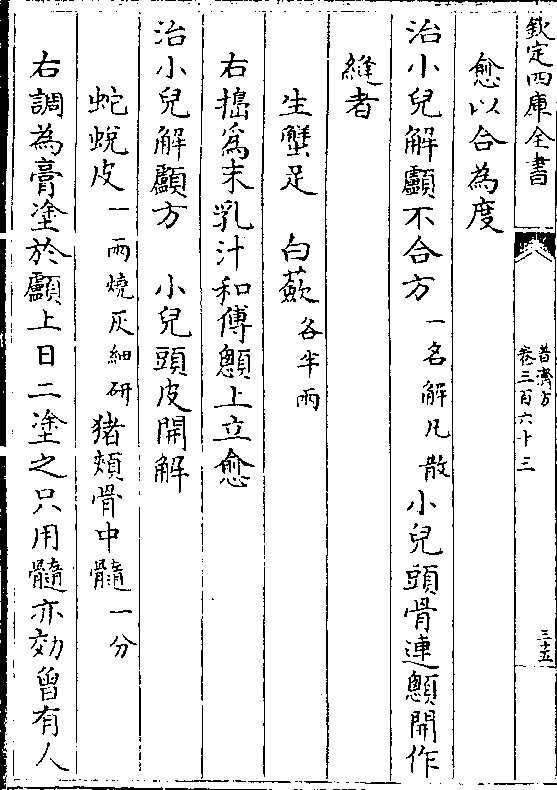 欽定四庫全書
普濟方
卷三百六十三
三十五
愈以合為度
治小兒解顱不合方 一名解凡散 小兒頭骨連顖開作
縫者
生蟹足 白蘞 各半兩
右搗為末乳汁和傅顖上立愈
治小兒解顱方 小兒頭皮開解
蛇蛻皮 一兩燒灰細研 猪頰骨中髓 一分
右調為膏塗於顱上日二塗之只用髓亦効曾有人